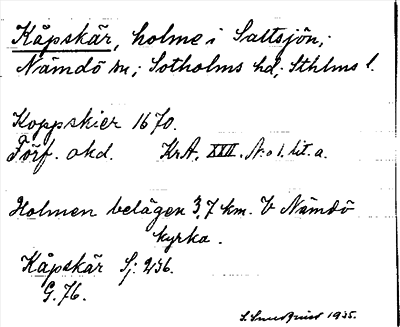 Kåpskär, holme i Saltsjön,
Nämdö sn; Sotholms hd; Sthlms l.
Koppskier 1670.
Förf. okd. KrA. XXII. N:o 1. lit. a.
Holmen belägen 3,7 km. V Nämdö
kyrka.
Kåpskär Sj: 236.
G. 76.
1935.